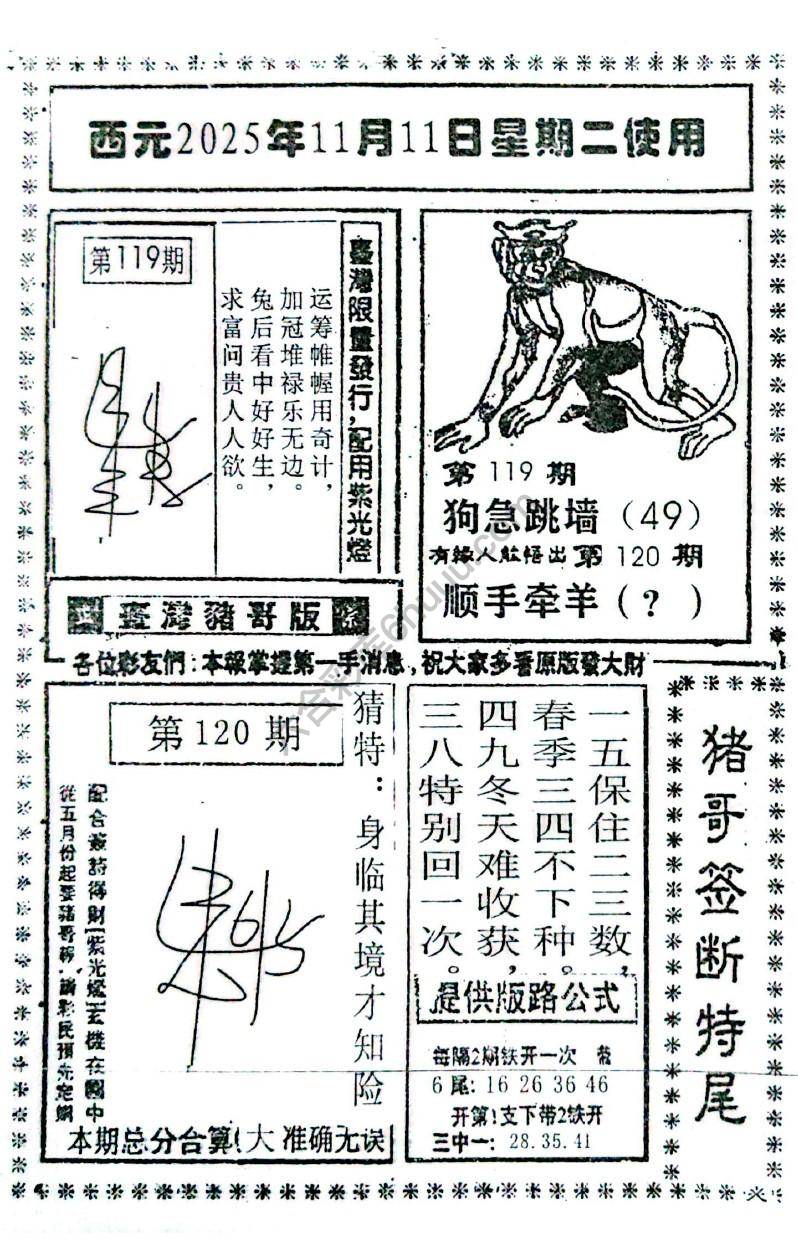 西元2025年11月11日星期二使用
第119期
臺灣限量發行,配用紫光燈
运筹帷幄用奇计,
加冠堆禄乐无边。
兔后看中好好生,
求富问贵人人欲。
臺灣豬哥版
第119期
狗急跳墙(49)
有緣人能悟出第120期
顺手牵羊(?)
各位彩友們:本報掌握第一手消息,祝大家多看原版發大財
第120期
猜特:身临其境才知险
配合簽詩得財(紫光燈)玄機在圖中
從五月份起要豬哥報,請彩民預先定購
本期总分合算!大 准确无误
一五保住二三数,
春季三四不下种。
四九冬天难收获,
三八特别回一次。
提供版路公式
每隔2期铁开一次
6尾:16 26 36 46
开第1支下带2铁开
三中一:28.35.41
猪哥签断特尾
六合彩库6huuu.com